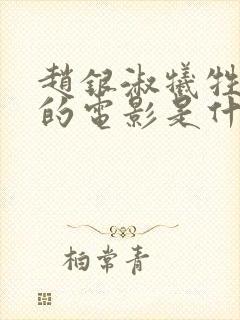 趙銀淑犧牲
的電影是什
柏常青